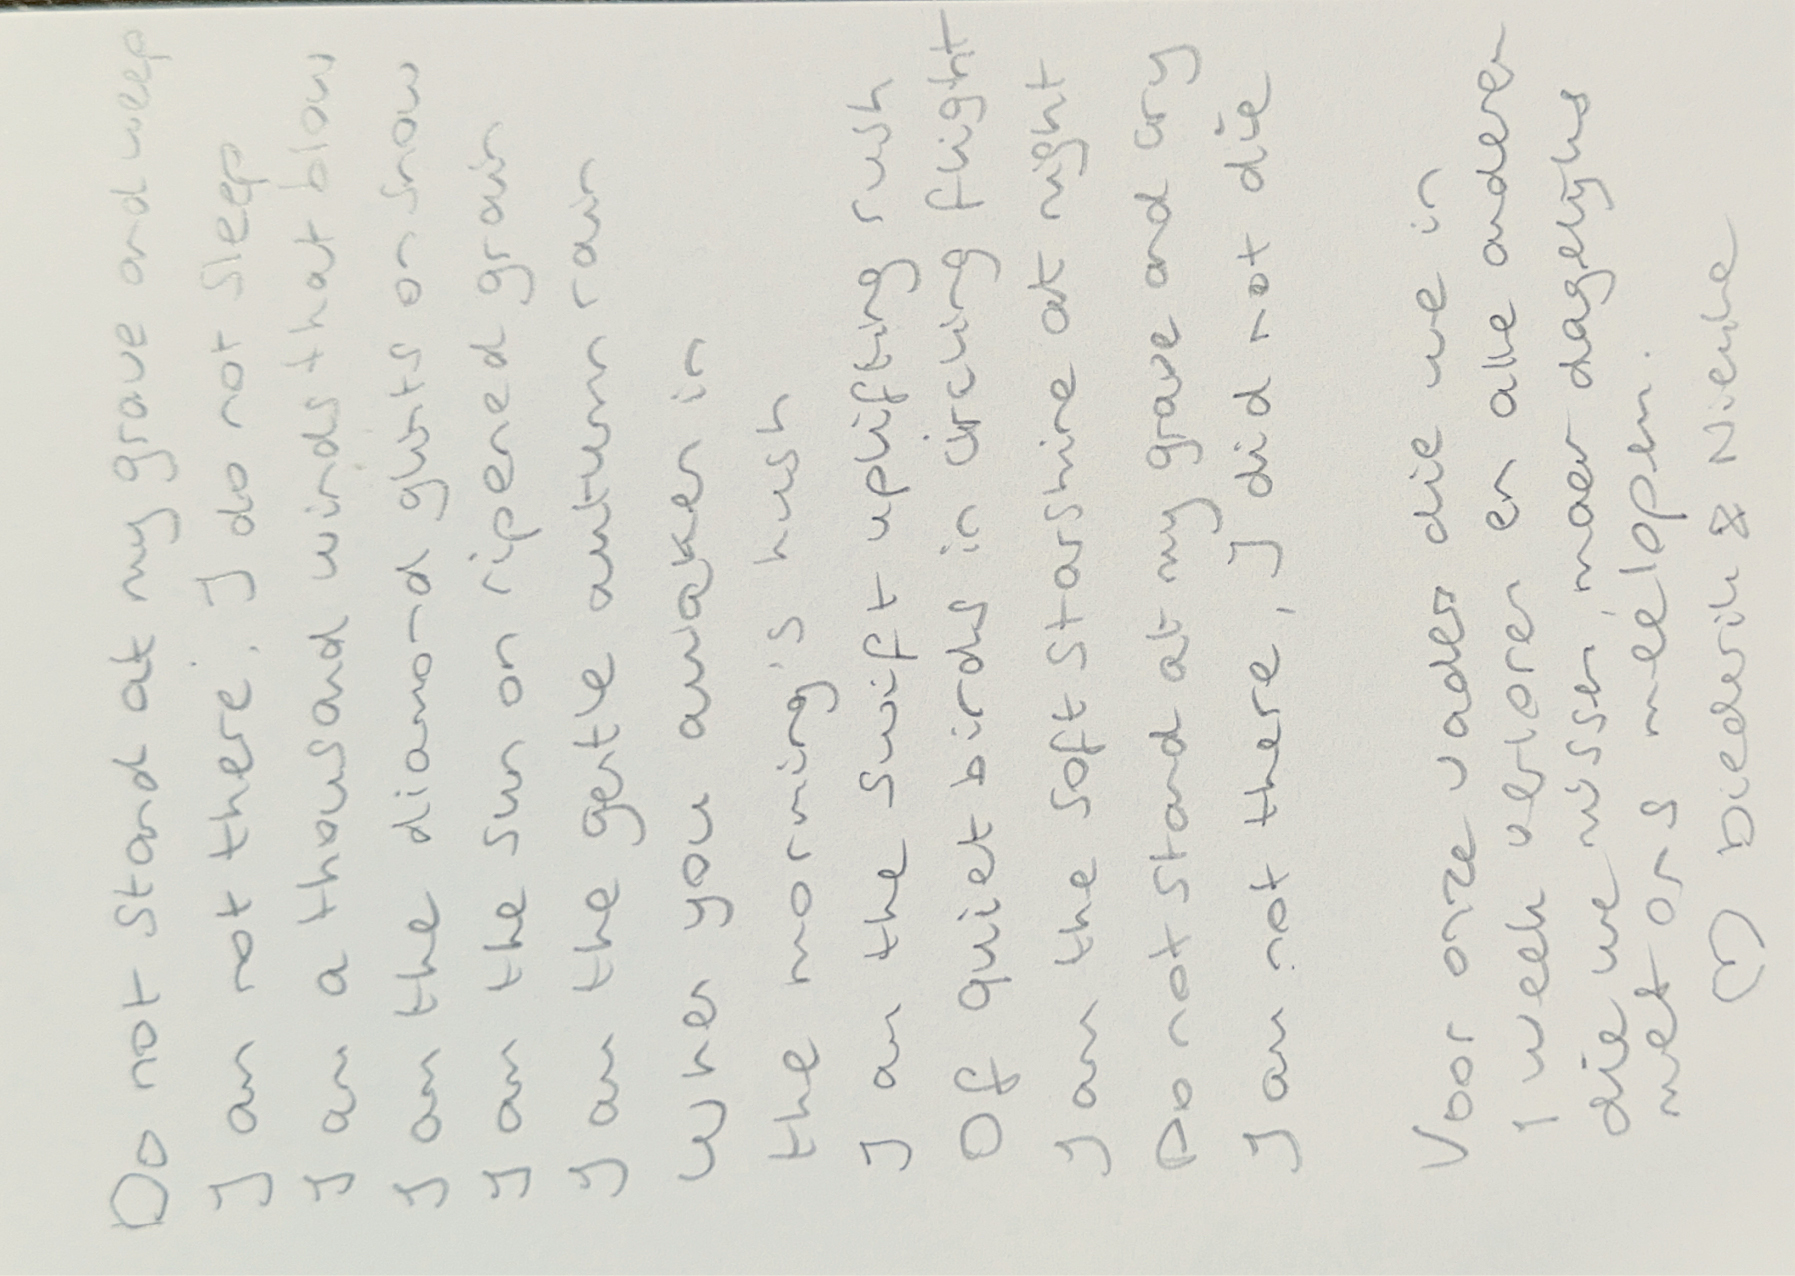 Do not stand at my grave and weep
I am not there. I do not sleep
I am a thousand winds that blow
I am the diamond glints on snow
I am the sun on ripened grain
I am the gentle autumn rain
When you awaken in
the morning's hush
I am the swift uplifting rush
Of quiet birds in circling flight
I am the soft starshine at night
Do not stand at my grave and cry
I am not there, I did not die
Voor onze vader die we in
1 week verloren en alle anderen
die we missen, maar dagelijks
met ons meelopen.
♡ Diederik & Nienke